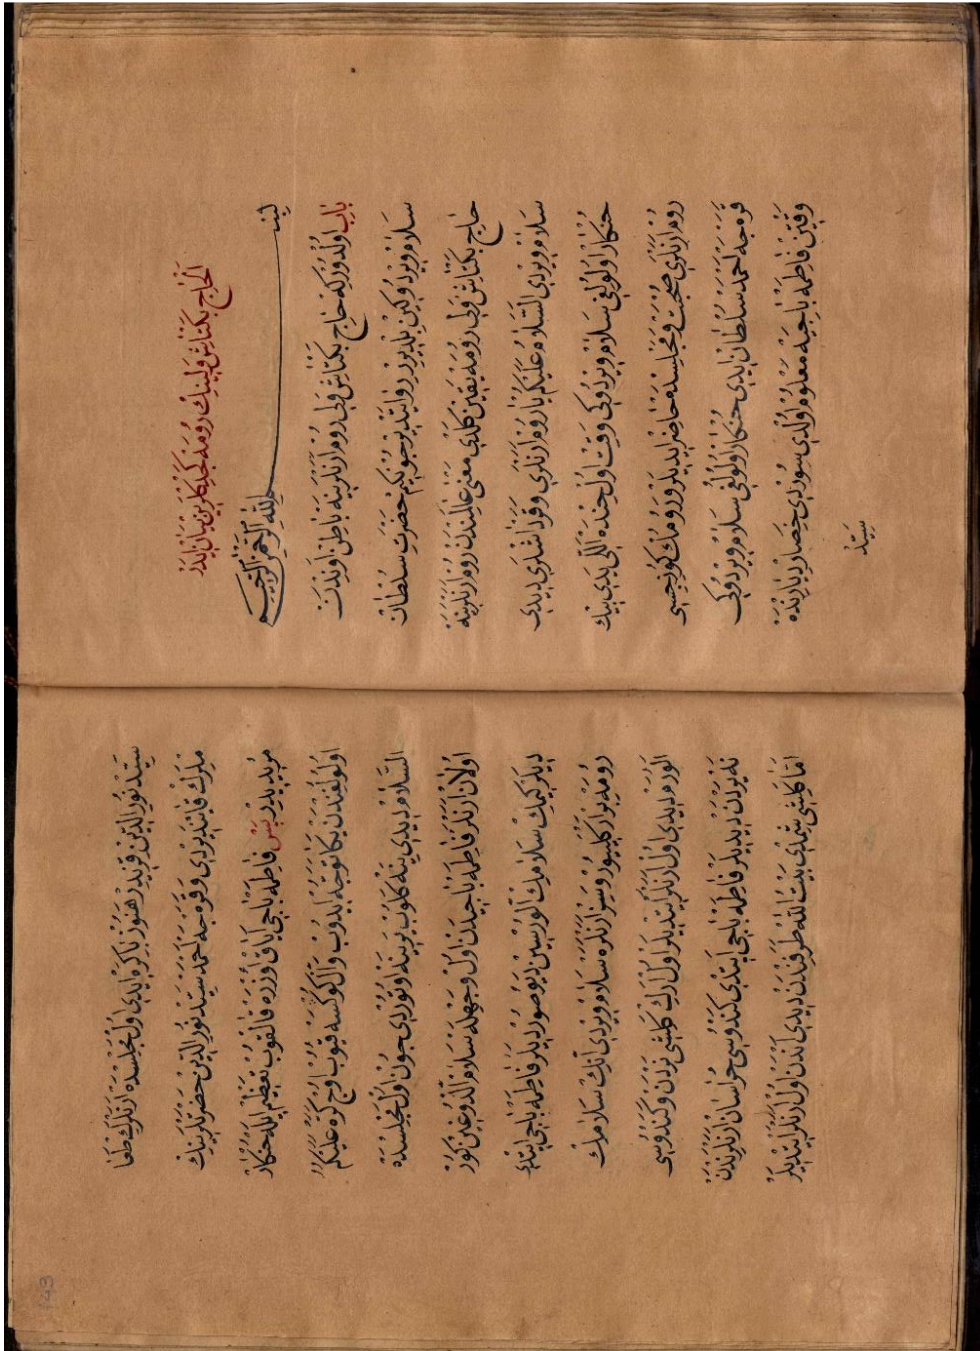 الحاج بكتاش ولينك رومه كلدكلرين بيان ايدر
بسم الله الرحمن الرحيم
باب اولدوركه حاج بكتاش ولى روم ارنلرينه باطن اوندن
سلام ويردوكين بلديرر روايتدر چونكيم حضرت سلطان
حاج بكتاش ولى رومه يقين كلدى معنى عالمندن روم ارنلرينه
سلام ويردى السلام عليكم يا روم ارنلرى وقرداشلرى ديدى
حنكار اولولغى سلام ويردوكى وقت اول حنده اللى يدى بيك
روم ارنلرى صحبت ومجلسده حاضر ايديلر ورومك كوزجيسى
قره جه احمد سلطان ايدى حنكار اولولغى سلام ويردوكى
وقتين فاطمه باجيه معلوم اولدى سورى حصار ديارنده
سيد
سيد نور الدين قزيدر هنوز باكره ايدى اول مجلسده ارنلرك طعا
ملرك قابتديردى وقره جه احمد سيد نور الدين حضرتلرينك
مريديدر پس فاطمه باجى اياق اوزره قالقوب تعظيم ايله حنكار
اولولغندن يكا توجه ايدوب وال كوكسه قيوب اوچ كره عليكم
السلام ديدى ينه كلوب يرينه اوتوردى چون اول مجلسده
اولان ارنلر فاطمه باجيدن اول وجهله سلام الدوغين كور
ديلر كيمك سلامك الورسين ديو صورديلر فاطمه باجى ايتدى
رومه بر ار كلييورو سز ارنلره سلام ويردى انك سلامك
الورم ديدى اول ارنلر ايتديلر اول ارك كلشى نردن وكندوسى
نه يردن ديديلر فاطمه باجى ايتدى كندوسى خراسان ارنلرندن
اما كلشى شمدى بيت الله طرفندن ديدى اندن اول ارنلر ايتديلر
143